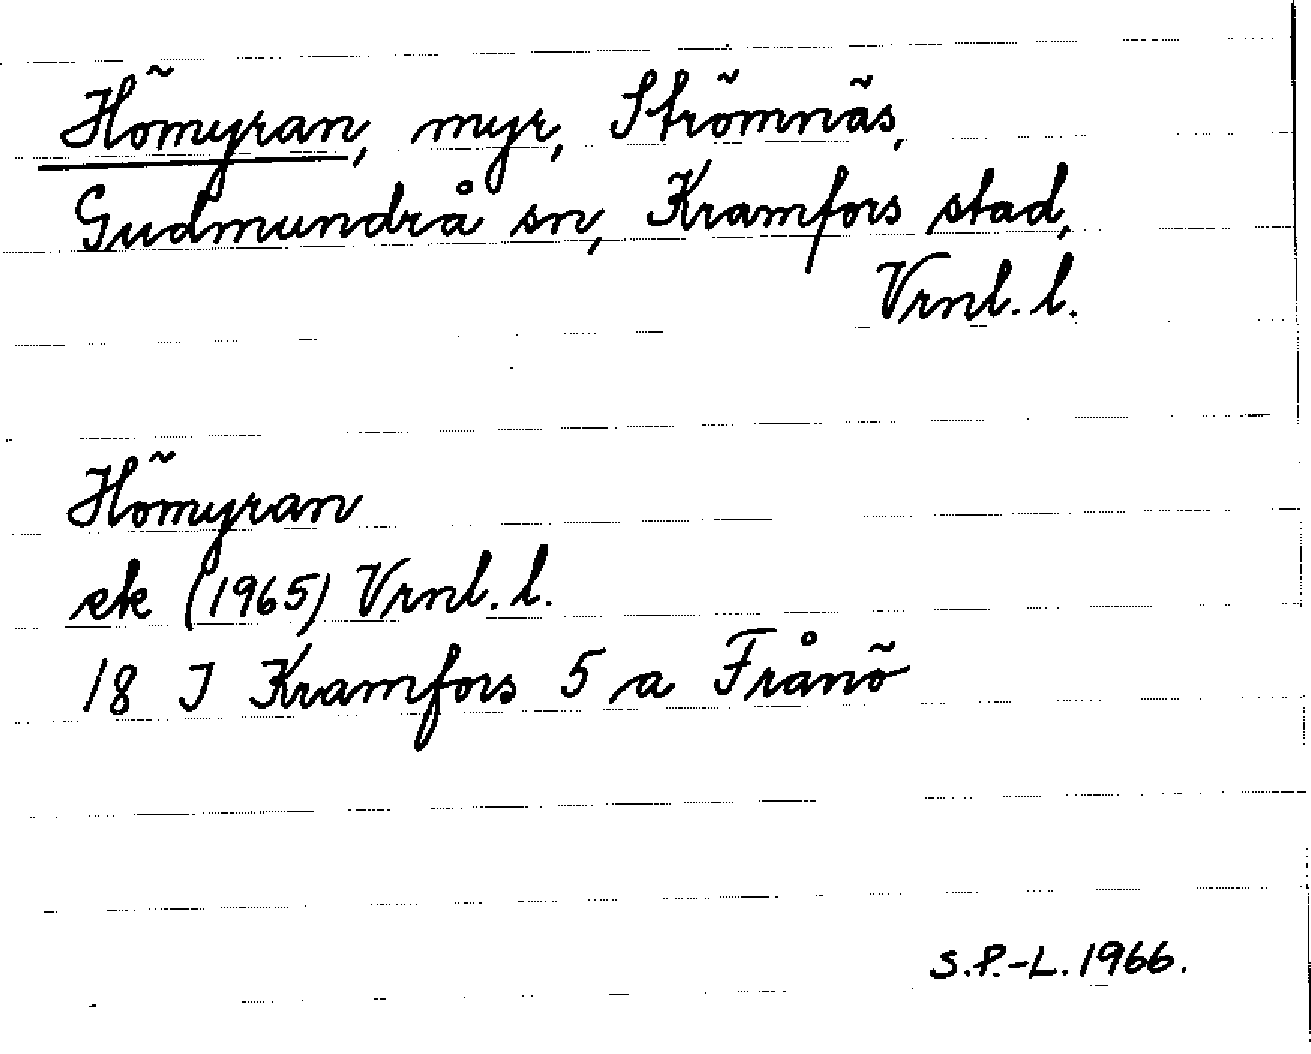 Hömyran, myr, Strömnäs,
Gudmundrå sn, Kramfors stad,
Vrnl. l.
Hömyran
ek (1965) Vrnl. l.
18 I Kramfors 5 a Frånö
S.P.-L. 1966.